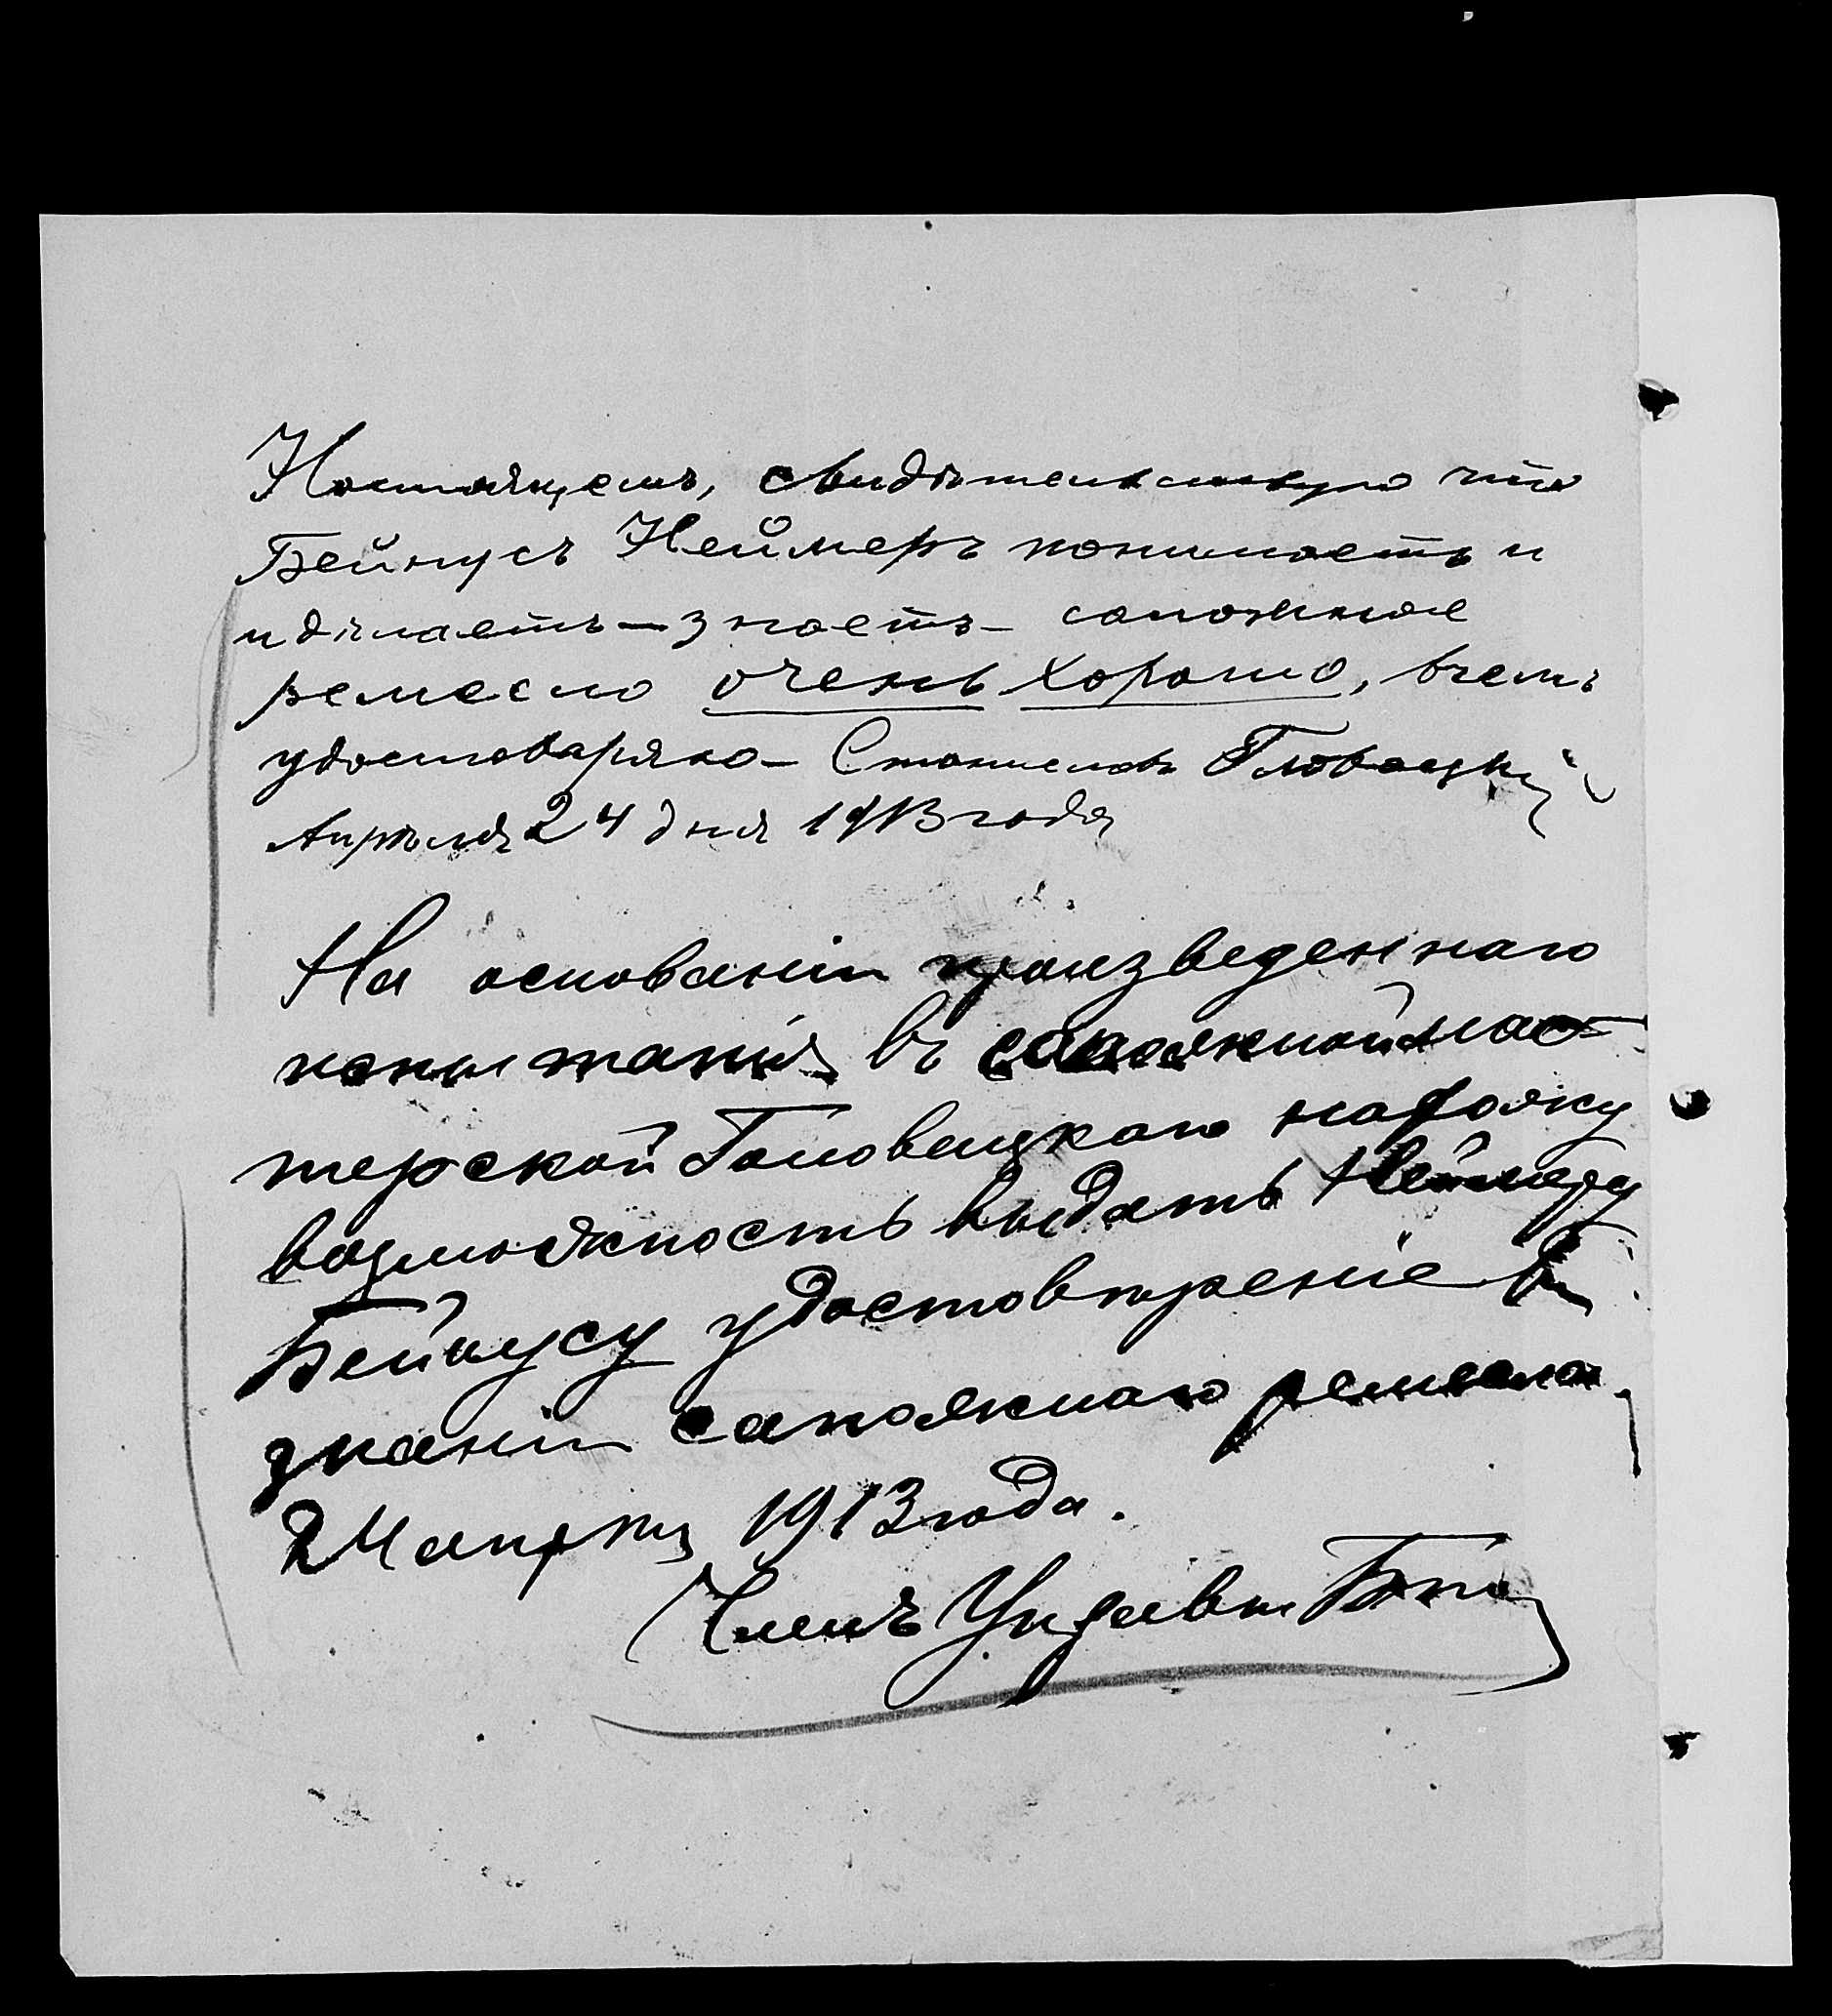 Ностоящемъ, свидѣтельствую что
Бейнусъ Неймеръ понимоетъ и
и дѣлаетъ – зноетъ – сопожное
ремесло очень хорошо, вчемъ
удостоваряю – Станиславъ Гловацкий
Апрѣля 24 дня 1913 года
На основаніи произведеннаго
испытанія въ сапожной мас-
терской Гловацкаго нахожу
возможность выдать Неймеру
Бейнусу удостовѣреніе въ
знаніи сапожнаго ремесла.
24 апрѣля 1913 года.
Членъ Управы